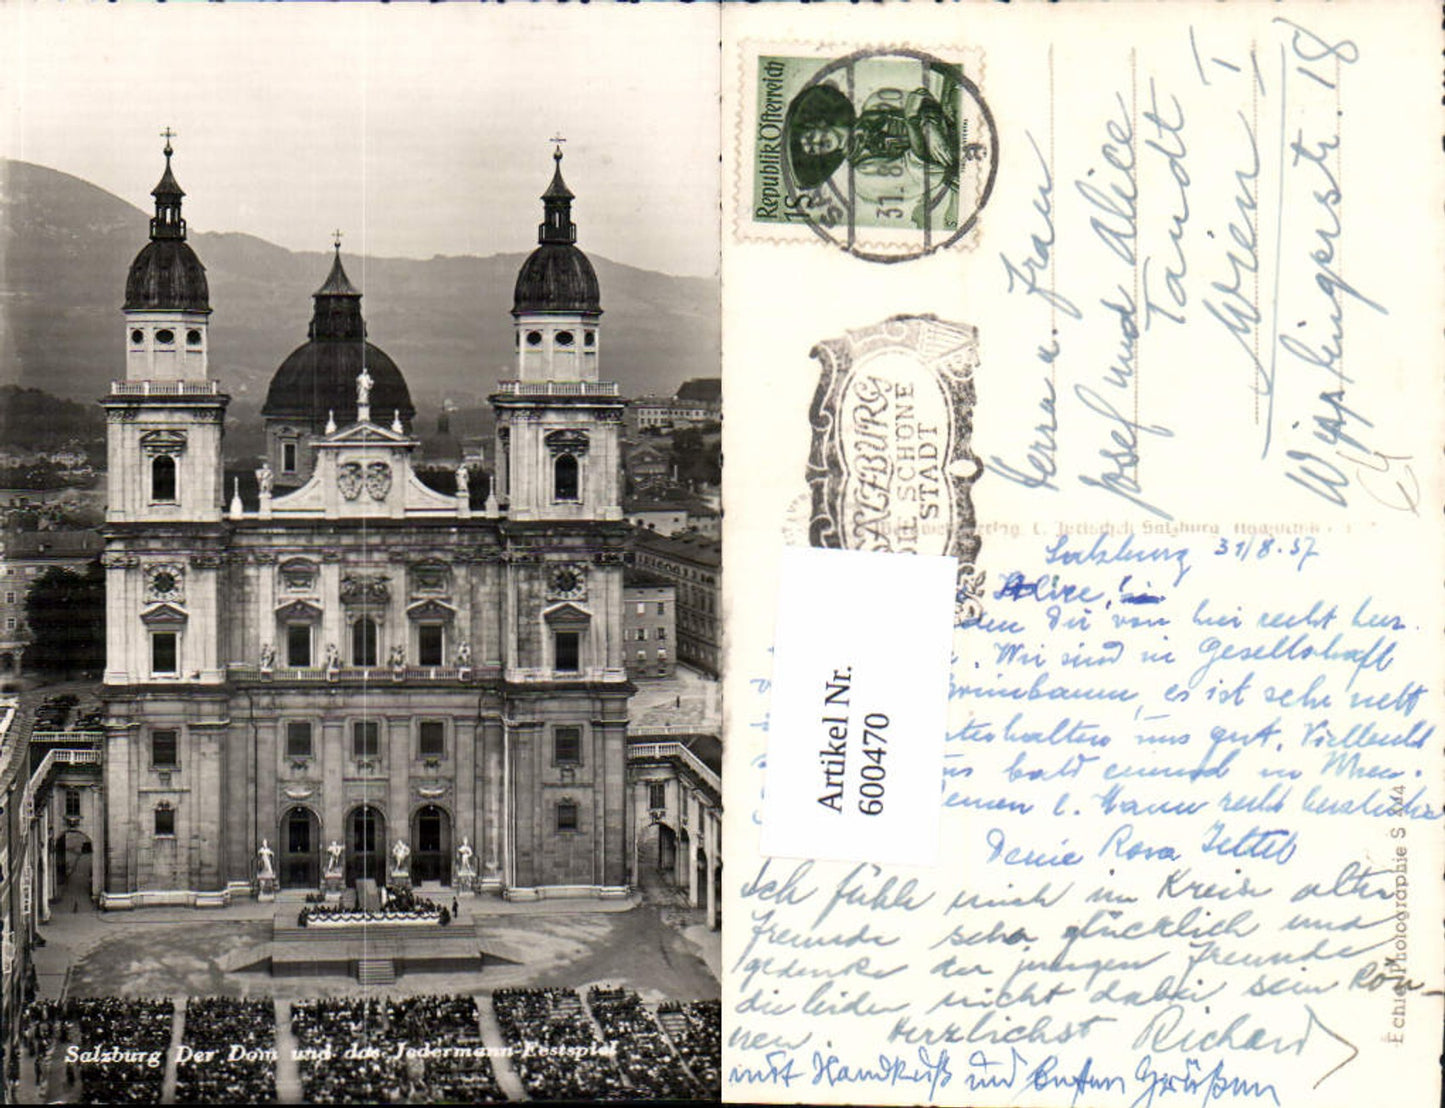 Salzburg Der Dom und das Jedermann-Festspiel
Republik Österreich
1S
31.8
SALZBURG
DIE SCHÖNE
STADT
Herrn u. Frau
Josef und Alice
Tandt
Wien I
Wipplingerstr. 18
Salzburg 31/8.57
Alice!
Du von hier recht herz.
Wir sind in Gesellschaft
Grünbaum, es ist sehr nett
unterhalten uns gut. Vielleicht
bald einmal in Wien.
Deinen l. Mann recht herzliche
Deine Rosa
Ich fühle mich im Kreise alter
Freunde sehr glücklich und
gedenke der jungen Freunde
die leider nicht dabei sein kön-
nen. Herzlichst Richard
mit Handkuß und besten Grüßen
Artikel Nr.
600470
Echte Photographie S 244